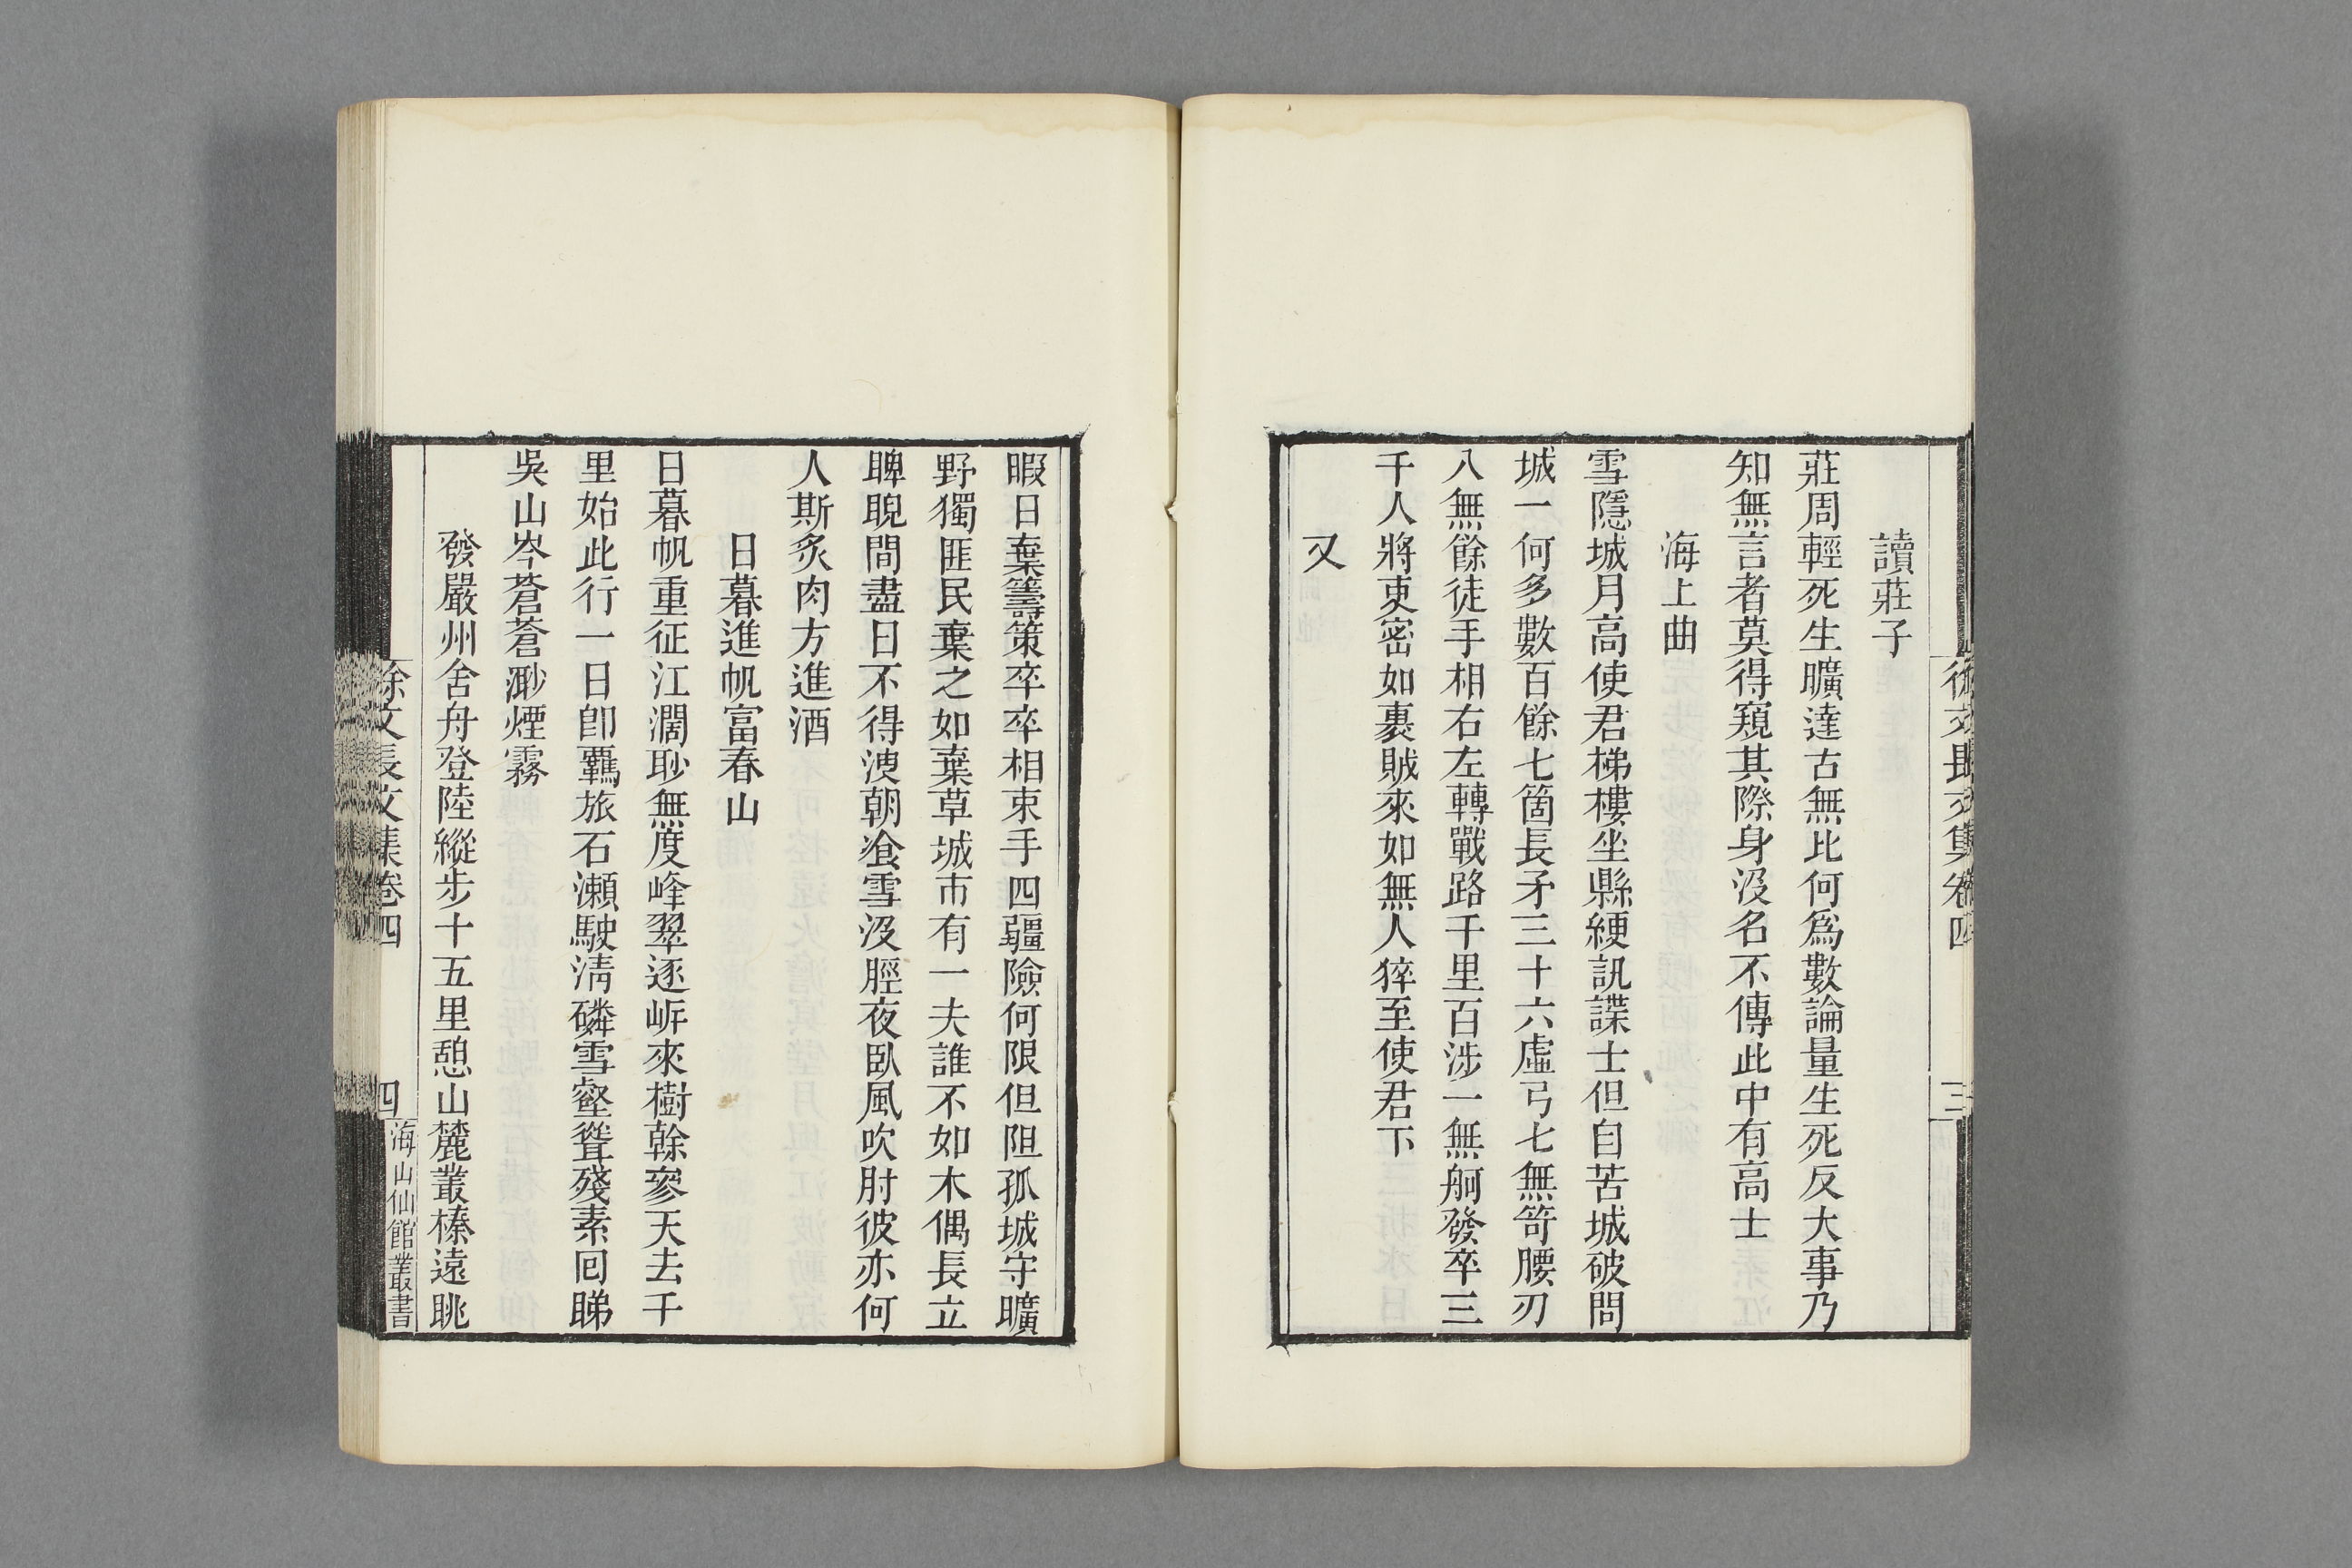 徐文長文集卷四
三
讀莊子
莊周輕死生曠達古無比何爲數論量生死反大事乃
知無言者莫得窺其際身沒名不傳此中有高士
海上曲
雪隱城月高使君梯樓坐縣綆訊諜士但自苦城破問
城一何多數百餘七箇長矛三十六虛弓七無笴腰刃
八無餘徒手相右左轉戰路千里百涉一無舸發卒三
千人將吏密如裹賊來如無人猝至使君下
又
暇日棄籌策卒卒相束手四疆險何限但阻孤城守曠
野獨匪民棄之如棄草城市有一夫誰不如木偶長立
睥睨間盡日不得溲朝飡雪沒脛夜臥風吹肘彼亦何
人斯炙肉方進酒
日暮進帆富春山
日暮帆重征江濶眇無度峰翠逐㟁來樹榦參天去千
里始此行一日卽羈旅石瀨駛淸磷雪壑聳殘素囘睇
吳山岑蒼蒼渺煙霧
發嚴州舍舟登陸縱步十五里憩山麓叢榛遠眺
徐文長文集卷四
四
海山仙館叢書